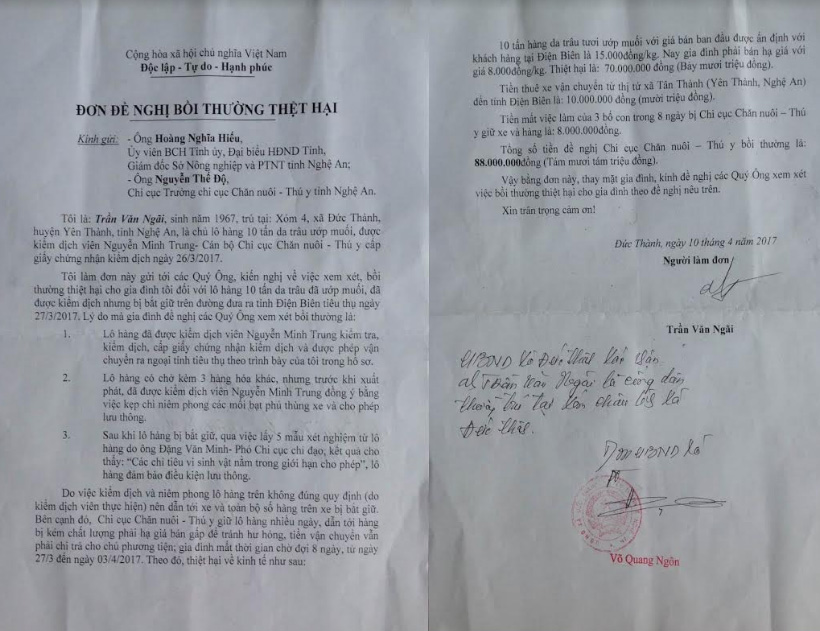 Cộng hòa xã hội chủ nghĩa Việt Nam
Độc lập - Tự do - Hạnh phúc
ĐƠN ĐỀ NGHỊ BỒI THƯỜNG THỆT HẠI
Kính gửi: - Ông Hoàng Nghĩa Hiếu,
Ủy viên BCH Tỉnh ủy, Đại biểu HĐND Tỉnh,
Giám đốc Sở Nông nghiệp và PTNT tỉnh Nghệ An;
- Ông Nguyễn Thế Độ,
Chi cục Trưởng chi cục Chăn nuôi - Thú y tỉnh Nghệ An.
Tôi là: Trần Văn Ngãi, sinh năm 1967, trú tại: Xóm 4, xã Đức Thành,
huyện Yên Thành, tỉnh Nghệ An, là chủ lô hàng 10 tấn da trâu ướp muối, được
kiểm dịch viên Nguyễn Minh Trung- Cán bộ Chi cục Chăn nuôi - Thú y cấp
giấy chứng nhận kiểm dịch ngày 26/3/2017.
Tôi làm đơn này gửi tới các Quý Ông, kiến nghị về việc xem xét, bồi
thường thiệt hại cho gia đình tôi đối với lô hàng 10 tấn da trâu đã ướp muối, đã
được kiểm dịch nhưng bị bắt giữ trên đường đưa ra tỉnh Điện Biên tiêu thụ ngày
27/3/2017. Lý do mà gia đình đề nghị các Quý Ông xem xét bồi thường là:
1. Lô hàng đã được kiểm dịch viên Nguyễn Minh Trung kiểm tra,
kiểm dịch, cấp giấy chứng nhận kiểm dịch và được phép vận
chuyển ra ngoại tỉnh tiêu thụ theo trình bày của tôi trong hồ sơ.
2. Lô hàng có chở kèm 3 hàng hóa khác, nhưng trước khi xuất
phát, đã được kiểm dịch viên Nguyễn Minh Trung đồng ý bằng
việc kẹp chì niêm phong các mối bạt phủ thùng xe và cho phép
lưu thông.
3. Sau khi lô hàng bị bắt giữ, qua việc lấy 5 mẫu xét nghiệm từ lô
hàng do ông Đặng Văn Minh- Phó Chi cục chỉ đạo; kết quả cho
thấy: “Các chỉ tiêu vi sinh vật nằm trong giới hạn cho phép”, lô
hàng đảm bảo điều kiện lưu thông.
Do việc kiểm dịch và niêm phong lô hàng trên không đúng quy định (do
kiểm dịch viên thực hiện) nên dẫn tới xe và toàn bộ số hàng trên xe bị bắt giữ.
Bên cạnh đó, Chi cục Chăn nuôi - Thú y giữ lô hàng nhiều ngày, dẫn tới hàng
bị kém chất lượng phải hạ giá bán gấp để tránh hư hỏng, tiền vận chuyển vẫn
phải chi trả cho chủ phương tiện; gia đình mất thời gian chờ đợi 8 ngày, từ ngày
27/3 đến ngày 03/4/2017. Theo đó, thiệt hại về kinh tế như sau:
10 tấn hàng da trâu tươi ướp muối với giá bán ban đầu được ấn định với
khách hàng tại Điện Biên là 15.000đồng/kg. Nay gia đình phải bán hạ giá với
giá 8.000đồng/kg. Thiệt hại là: 70.000.000 đồng (Bảy mươi triệu đồng).
Tiền thuê xe vận chuyển từ thị tứ xã Tân Thành (Yên Thành, Nghệ An)
đến tỉnh Điện Biên là: 10.000.000 đồng (mười triệu đồng).
Tiền mất việc làm của 3 bố con trong 8 ngày bị Chi cục Chăn nuôi – Thú
y giữ xe và hàng là: 8.000.000đồng.
Tổng số tiền đề nghị Chi cục Chăn nuôi – Thú y bồi thường là:
88.000.000đồng (Tám mươi tám triệu đồng).
Vậy bằng đơn này, thay mặt gia đình, kính đề nghị các Quý Ông xem xét
việc bồi thường thiệt hại cho gia đình theo đề nghị nêu trên.
Xin trân trọng cảm ơn!
Đức Thành, ngày 10 tháng 4 năm 2017
Người làm đơn
Trần Văn Ngãi
UBND Xã Đức Thành
Trần Văn Ngãi là công dân
thường trú tại xã
Đức Thành.
UBND Xã
Võ Quang Ngôn